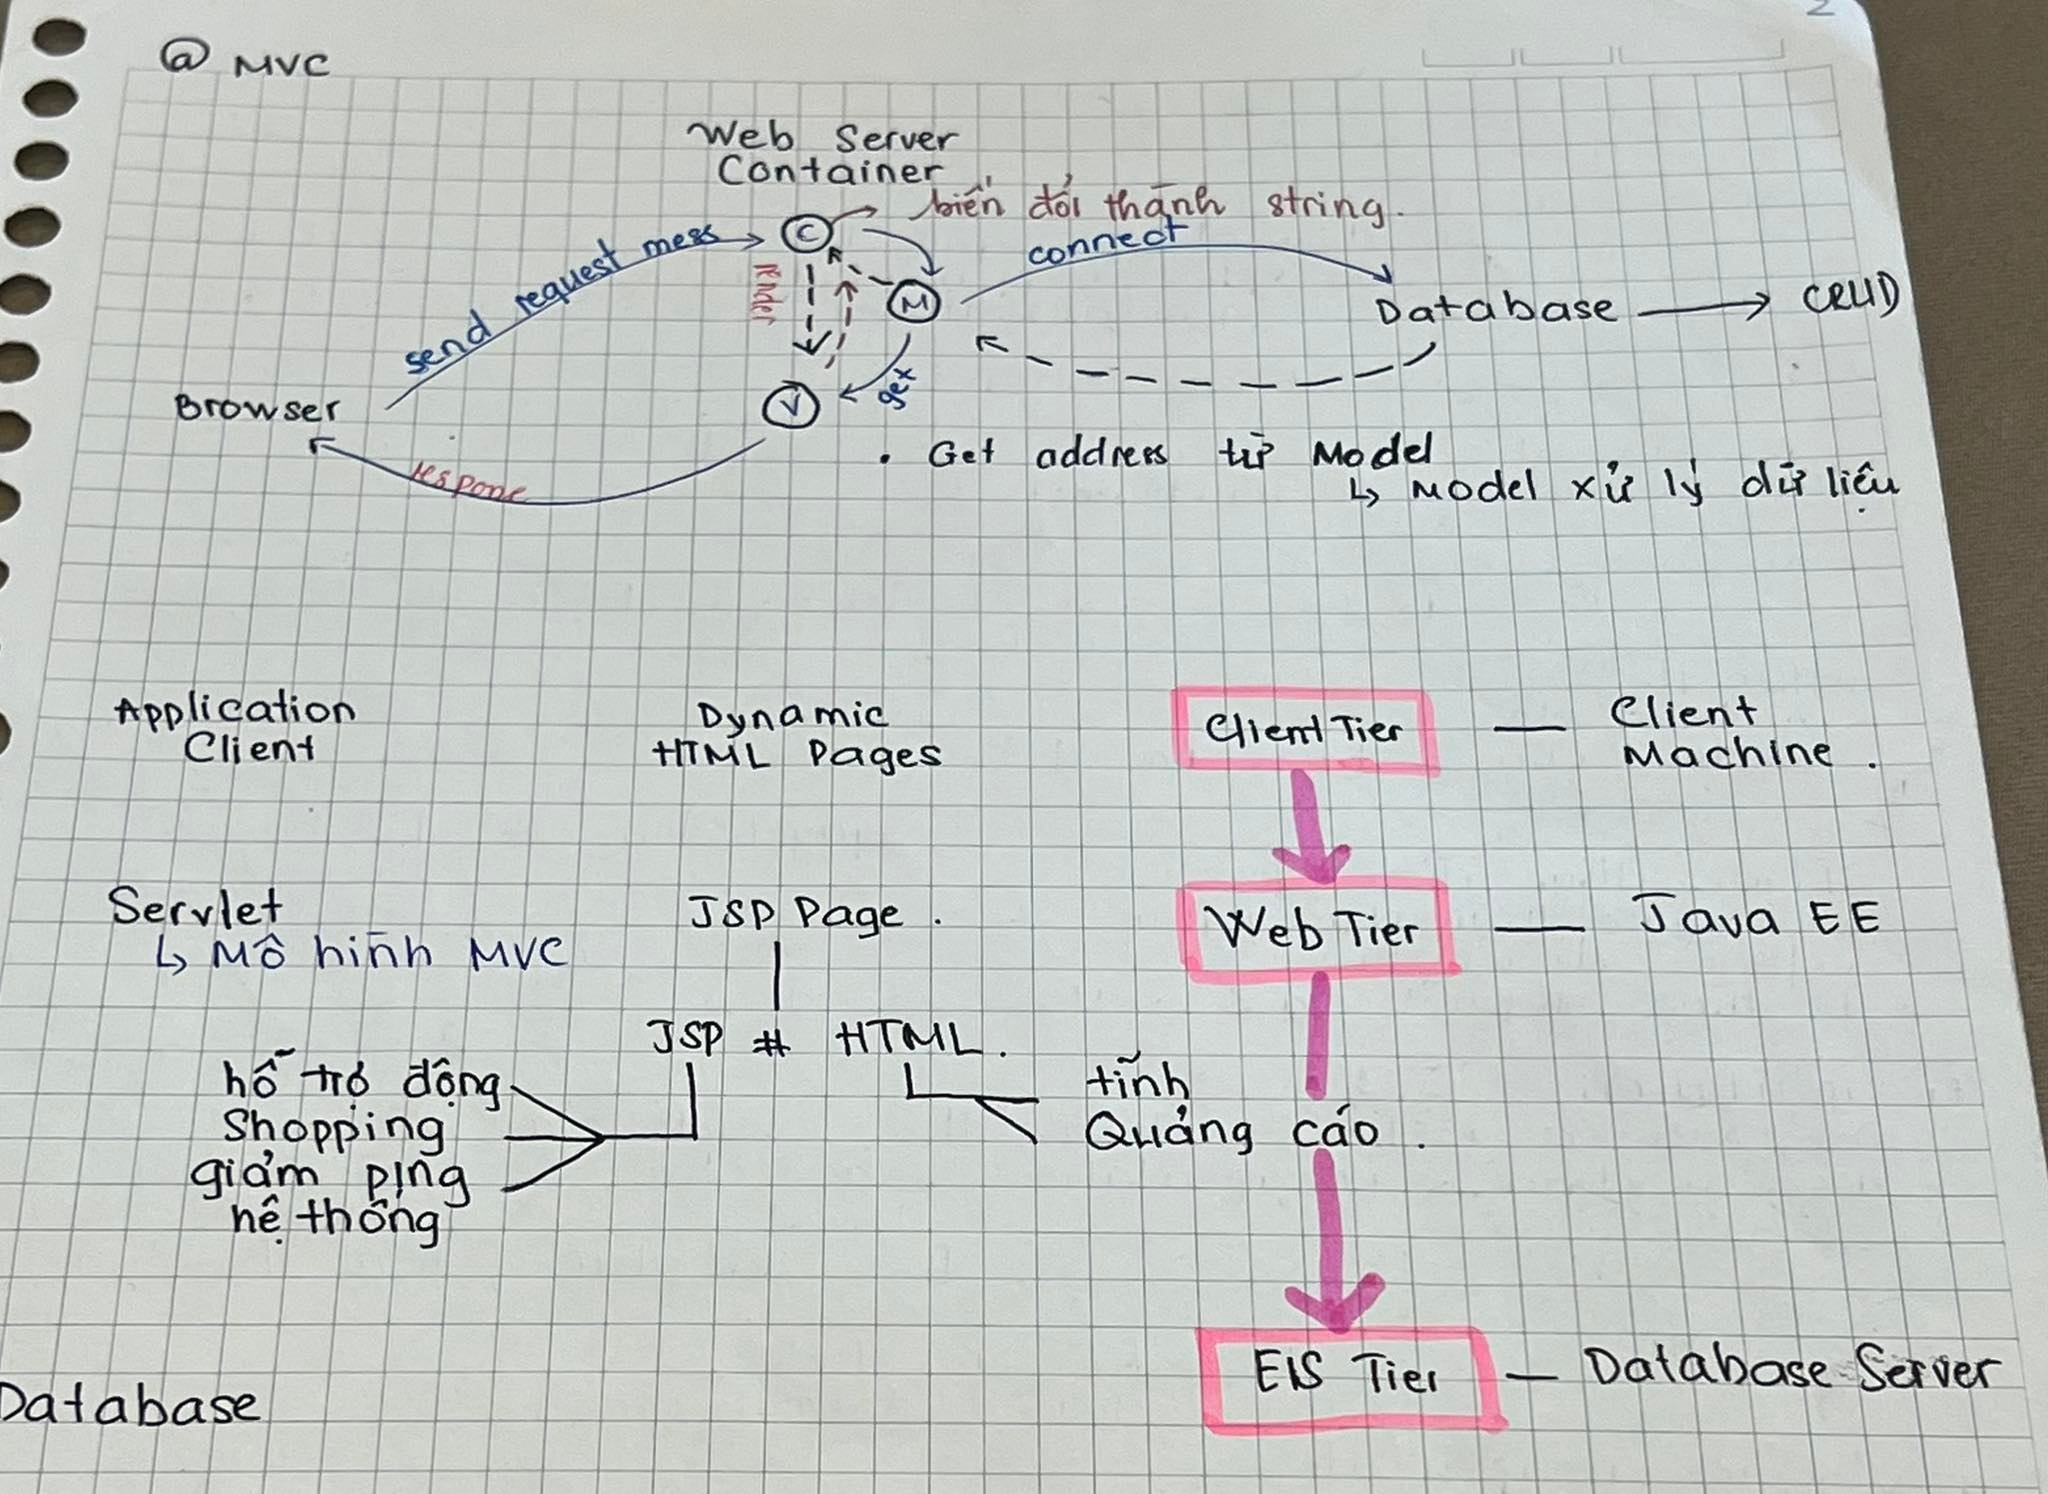 @ MVC
2
Web Server
Container
biến đổi thành string.
C
send request mess
connect
render
M
Database
CRUD
get
V
Browser
respone
• Get address từ Model
↳ Model xử lý dữ liệu
Application
Client
Dynamic
HTML Pages
Client Tier — Client
Machine.
Servlet
↳ Mô hình MVC
JSP Page.
Web Tier — Java EE
JSP # HTML.
hỗ trợ động
Shopping
giảm ping
hệ thống
tĩnh
Quảng cáo.
Database
EIS Tier — Database Server